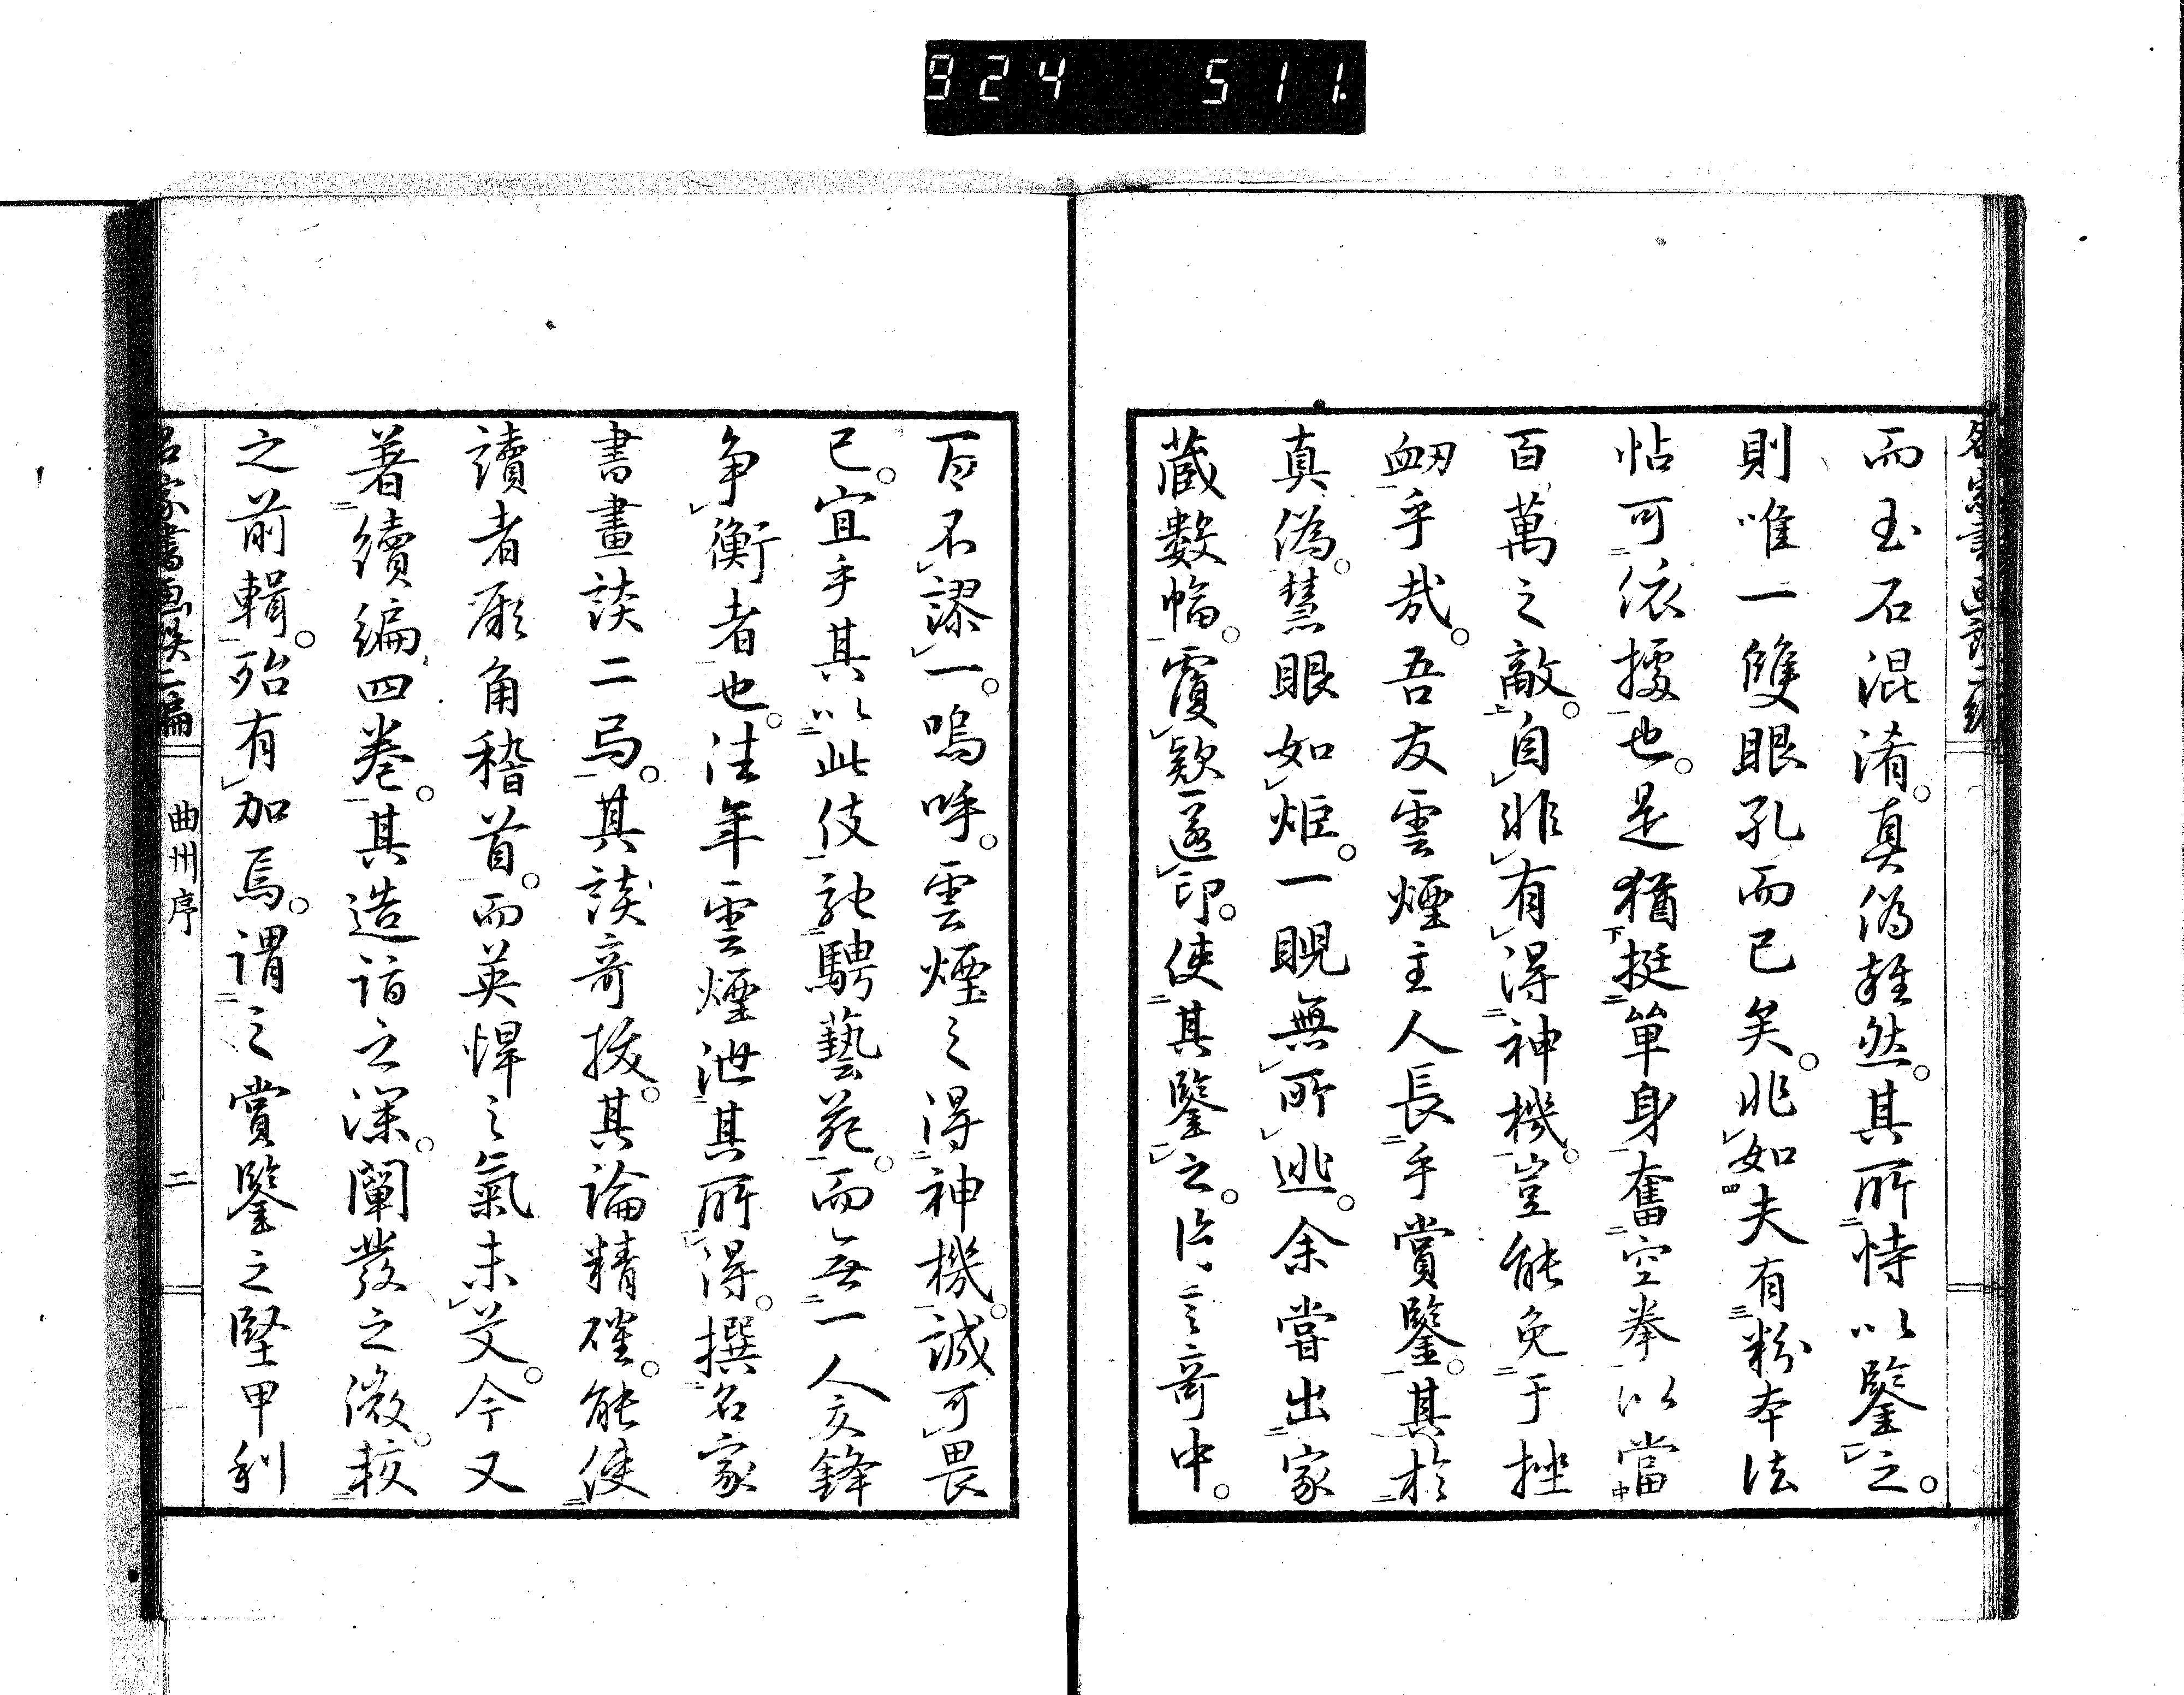 924 511.
名家書画談二編
而玉石混淆。真偽雜然。其所恃以鑒之。
則唯一雙眼孔而已矣。非如夫有粉本法
帖可依據也。是猶挺單身奮空拳以當
百萬之敵。自非有得神機。豈能免于挫
衂乎哉。吾友雲煙主人長乎賞鑒。其於
真偽。慧眼如炬。一睨無所逃。余嘗出家
藏數幅。覆款遂印。使其鑒之。訟言奇中。
百不謬一。嗚呼。雲煙之得神機。誠可畏
已。宜乎其以此伎馳騁藝苑。而無一人交鋒
争衡者也。往年雲煙泄其所得。撰名家
書畫談二編。其談奇拔。其論精確。能使
讀者厥角稽首。而英悍之氣未艾。今又
著續編四卷。其造詣之深。闡發之微。較
之前輯。殆有加焉。謂之賞鑒之堅甲利
名家書畫談二編
曲州序
二